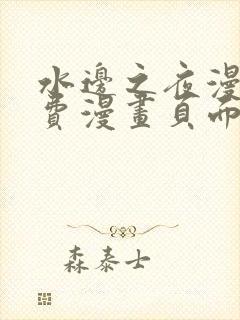 水邊之夜漫
費漫畫頁面
森泰士